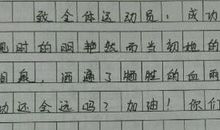 致全体运动员,成功
时的明艳然而当初她的
泪泉,洒遍了牺牲的血雨
功还会远吗?加油!你们